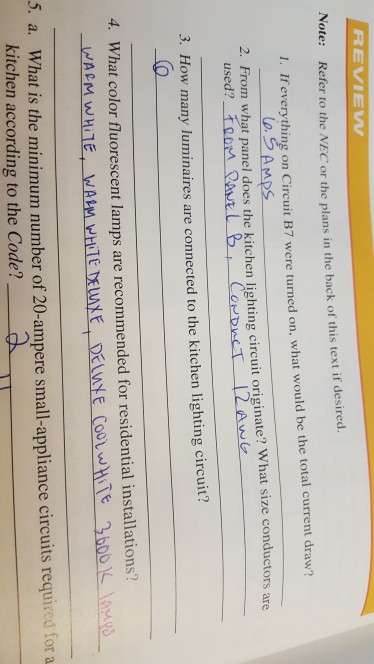 REVIEW
Note: Refer to the NEC or the plans in the back of this text if desired.
1. If everything on Circuit B7 were turned on, what would be the total current draw?
6.5 AMPS
2. From what panel does the kitchen lighting circuit originate? What size conductors are
used? FROM PANEL B, CONDUCT 12 AWG
3. How many luminaires are connected to the kitchen lighting circuit?
6
4. What color fluorescent lamps are recommended for residential installations?
WARM WHITE, WARM WHITE DELUXE, DELUXE COOL WHITE 3600K lamps
5. a. What is the minimum number of 20-ampere small-appliance circuits required for a
kitchen according to the Code? 2